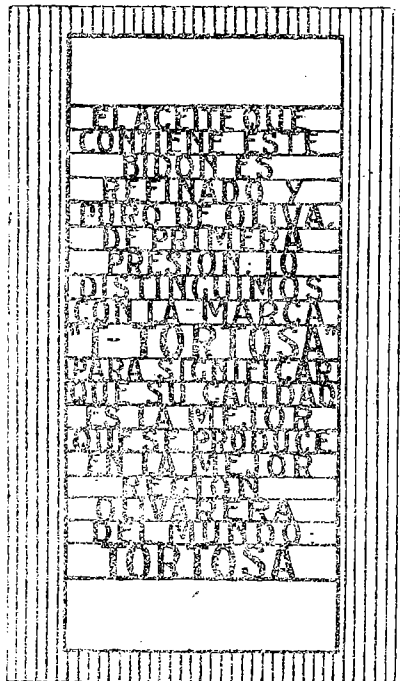 EL ACEITE QUE
CONTIENE ESTE
BIDON ES
REFINADO Y
PURO DE OLIVA.
DE PRIMERA
PRESION. LO
DISTINGUIMOS
CON LA - MARCA
"I - TORTOSA"
PARA SIGNIFICAR
QUE SU CALIDAD
ES LA MEJOR
QUE SE PRODUCE
EN LA MEJOR
REGION
OLIVARERA
DEL MUNDO.
TORTOSA